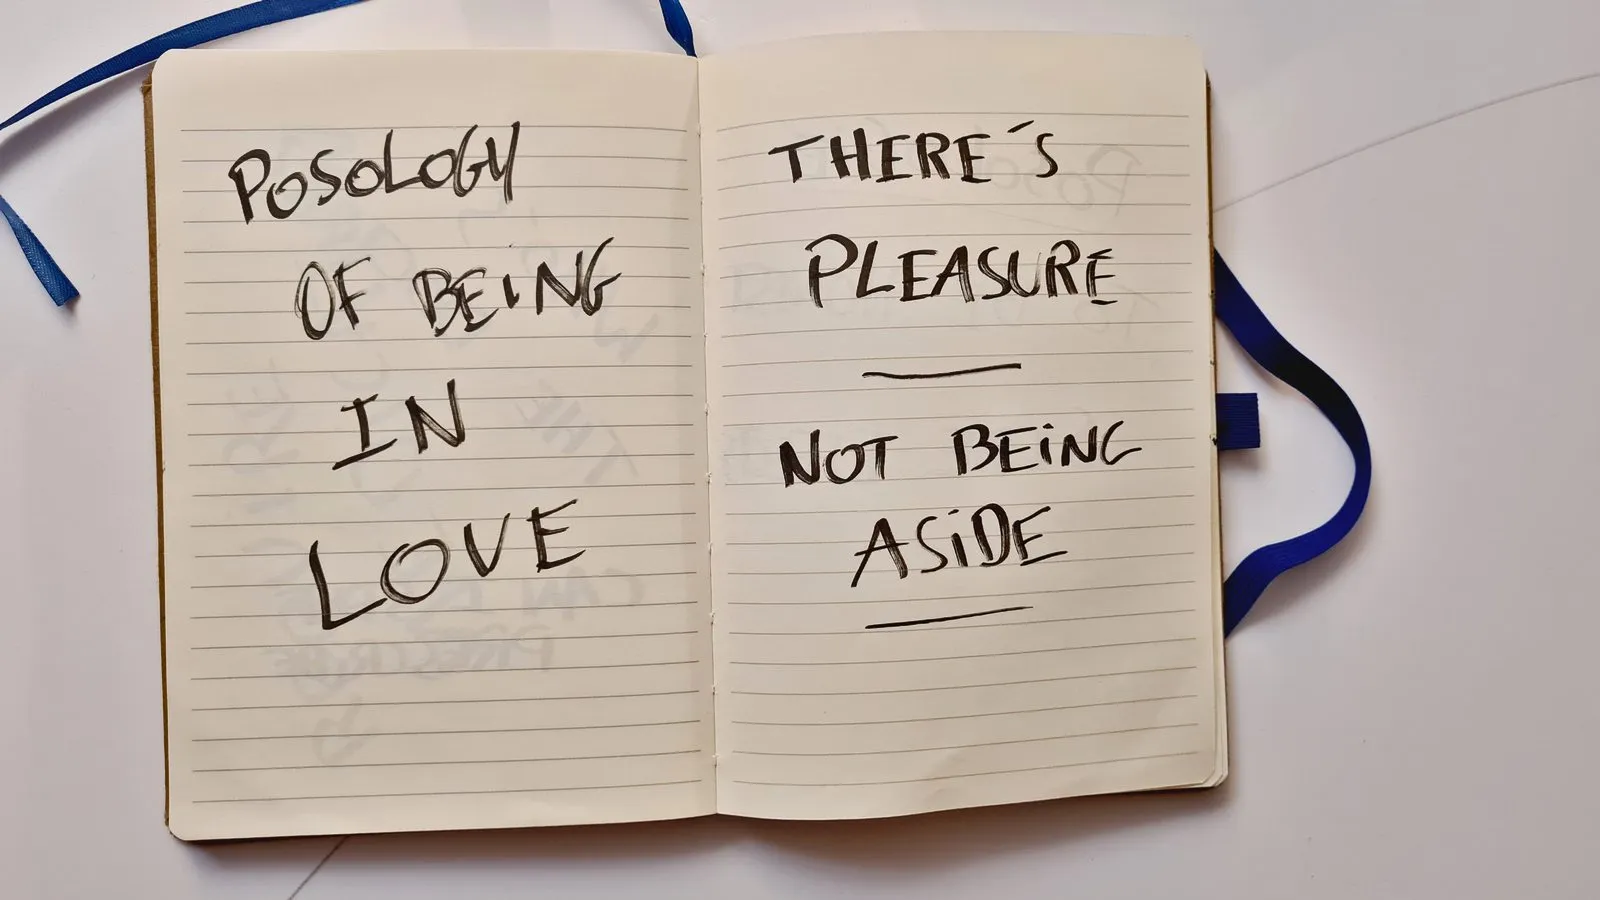 POSOLOGY
OF BEING
IN
LOVE
THERE´S
PLEASURE
NOT BEING
ASIDE